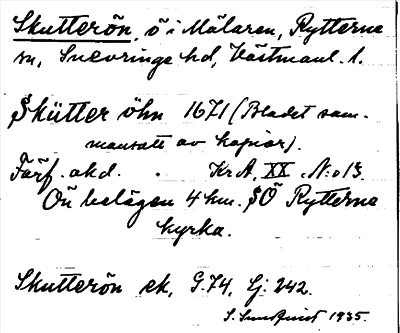 Skutterön, ö i Mälaren, Rytterne
sn, Snevringe hd, Västmanl. l.
Skütter öhn 1671 (Bladet sam-
mansatt av kopior).
Färf. akd. . KrA, XX, N:o 13.
Ön belägen 4 km. SÖ Rytterne
kyrka.
Skutterön ek, G.74, Ej. 242.
S. Sundquist 1935.